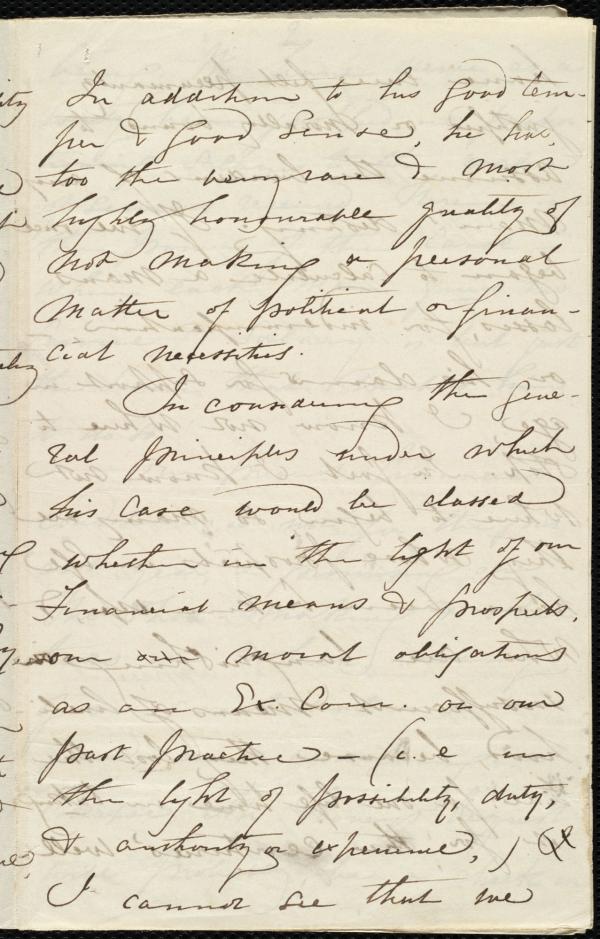 In addition to his good tem-
per & good sense, he has,
too the very rare & most
highly honourable quality of
not making a personal
matter of political or finan-
cial necessities.
In considering the gene-
ral principles under which
his case would be classed
whether in the light of our
Financial means & prospects,
our moral obligations
as an Ex. Com. or our
past practice - (i.e in
the light of possibility, duty,
& authority or experience,)
I cannot see that we